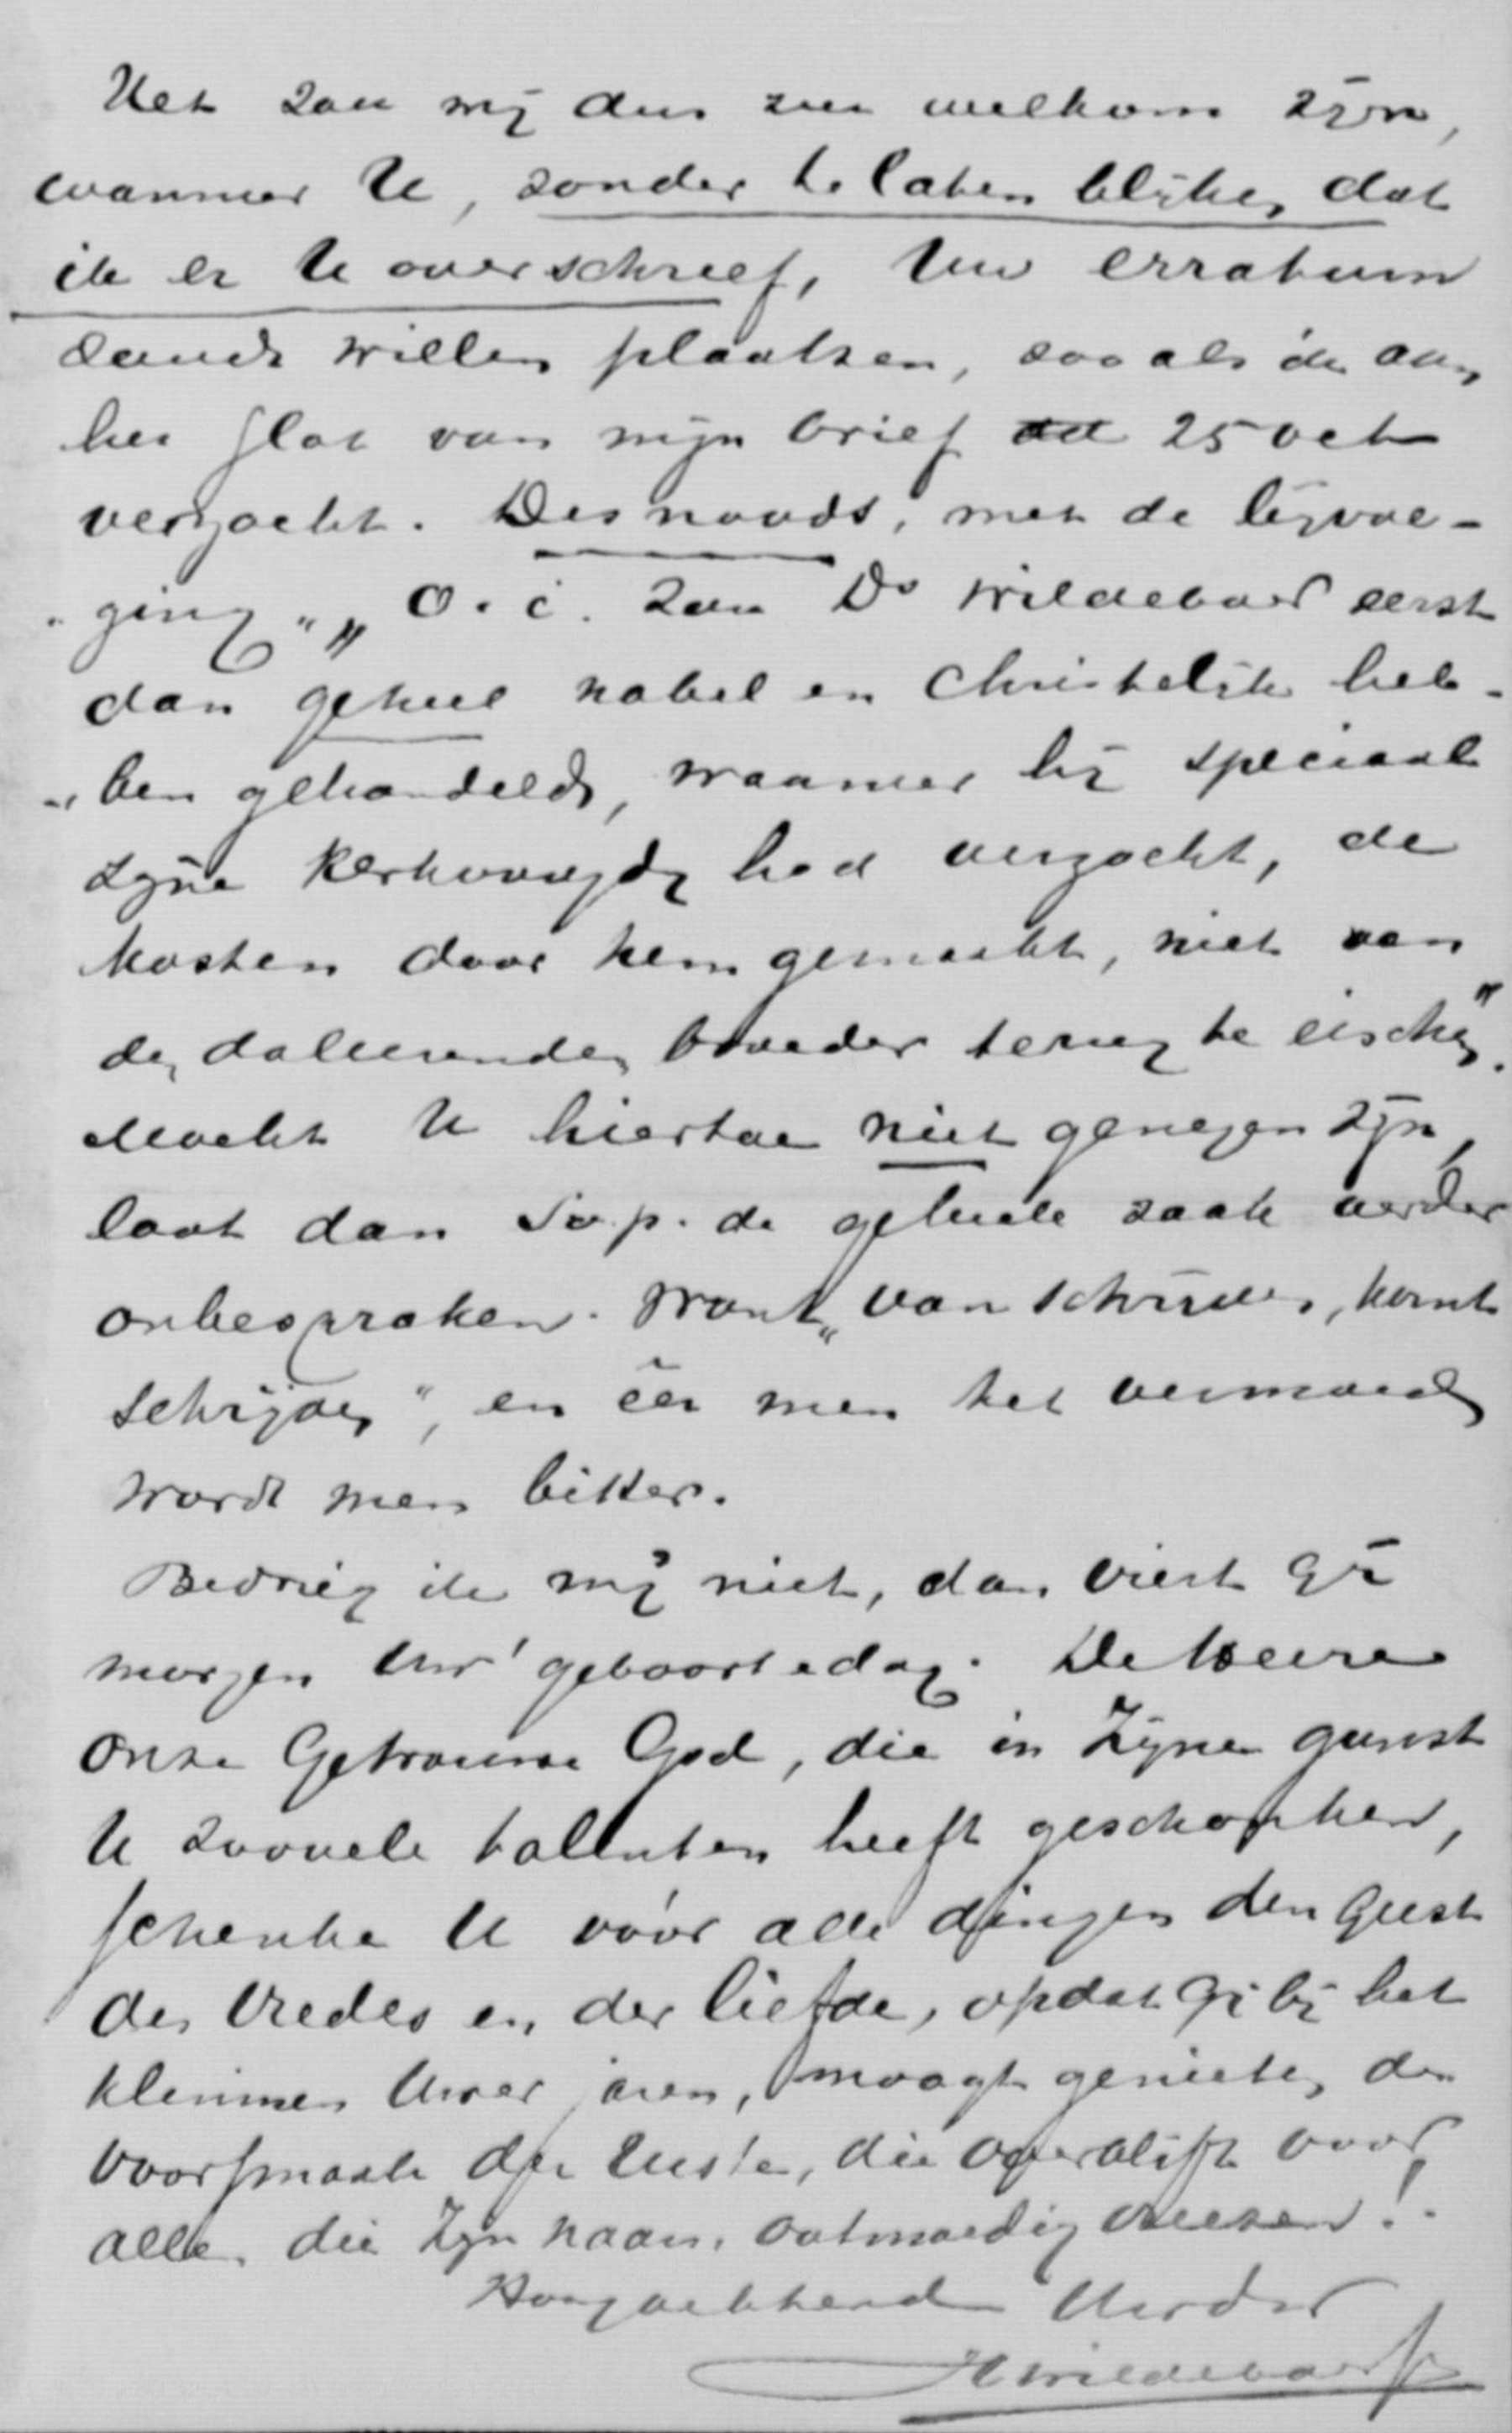 Het zou mij dus zeer welkom zijn,
wanneer U, zonder te laten blijken dat
ik er U over schreef, Uw erratum
zoudt willen plaatsen, zooals ik aan
het slot van mijn brief dd 25 Oct
verzocht. Desnoods, met de bijvoe-
„ging „„ O. i. zou Ds Wildeboer eerst
dan geheel nobel en Christelijk heb-
„ben gehandeld, wanneer hij speciaal
zijne kerkvoogdij had verzocht, de
kosten door hem gemaakt, niet van
de doleerende broeder terug te eischen".
Mocht U hiertoe niet genegen zijn,
laat dan s.v.p. de geheele zaak verder
onbesproken. Want „van schrijven, komt
schrijven", en eer men het vermoedt
wordt men bitter.
Bedrieg ik mij niet, dan viert Gij
morgen Uw geboortedag. De Heere
onze Getrouwe God, die in Zijne gunst
U zoovele talenten heeft geschonken,
schenke U vóór alle dingen den Geest
des vredes en der liefde, opdat Gij bij het
klimmen Uwer jaren, moogt genieten den
voorsmaak der ruste, die overblijft voor
allen die Zijn naam ootmoedig vreezen!.
Hoogachtend Uwdw
HWildeboer